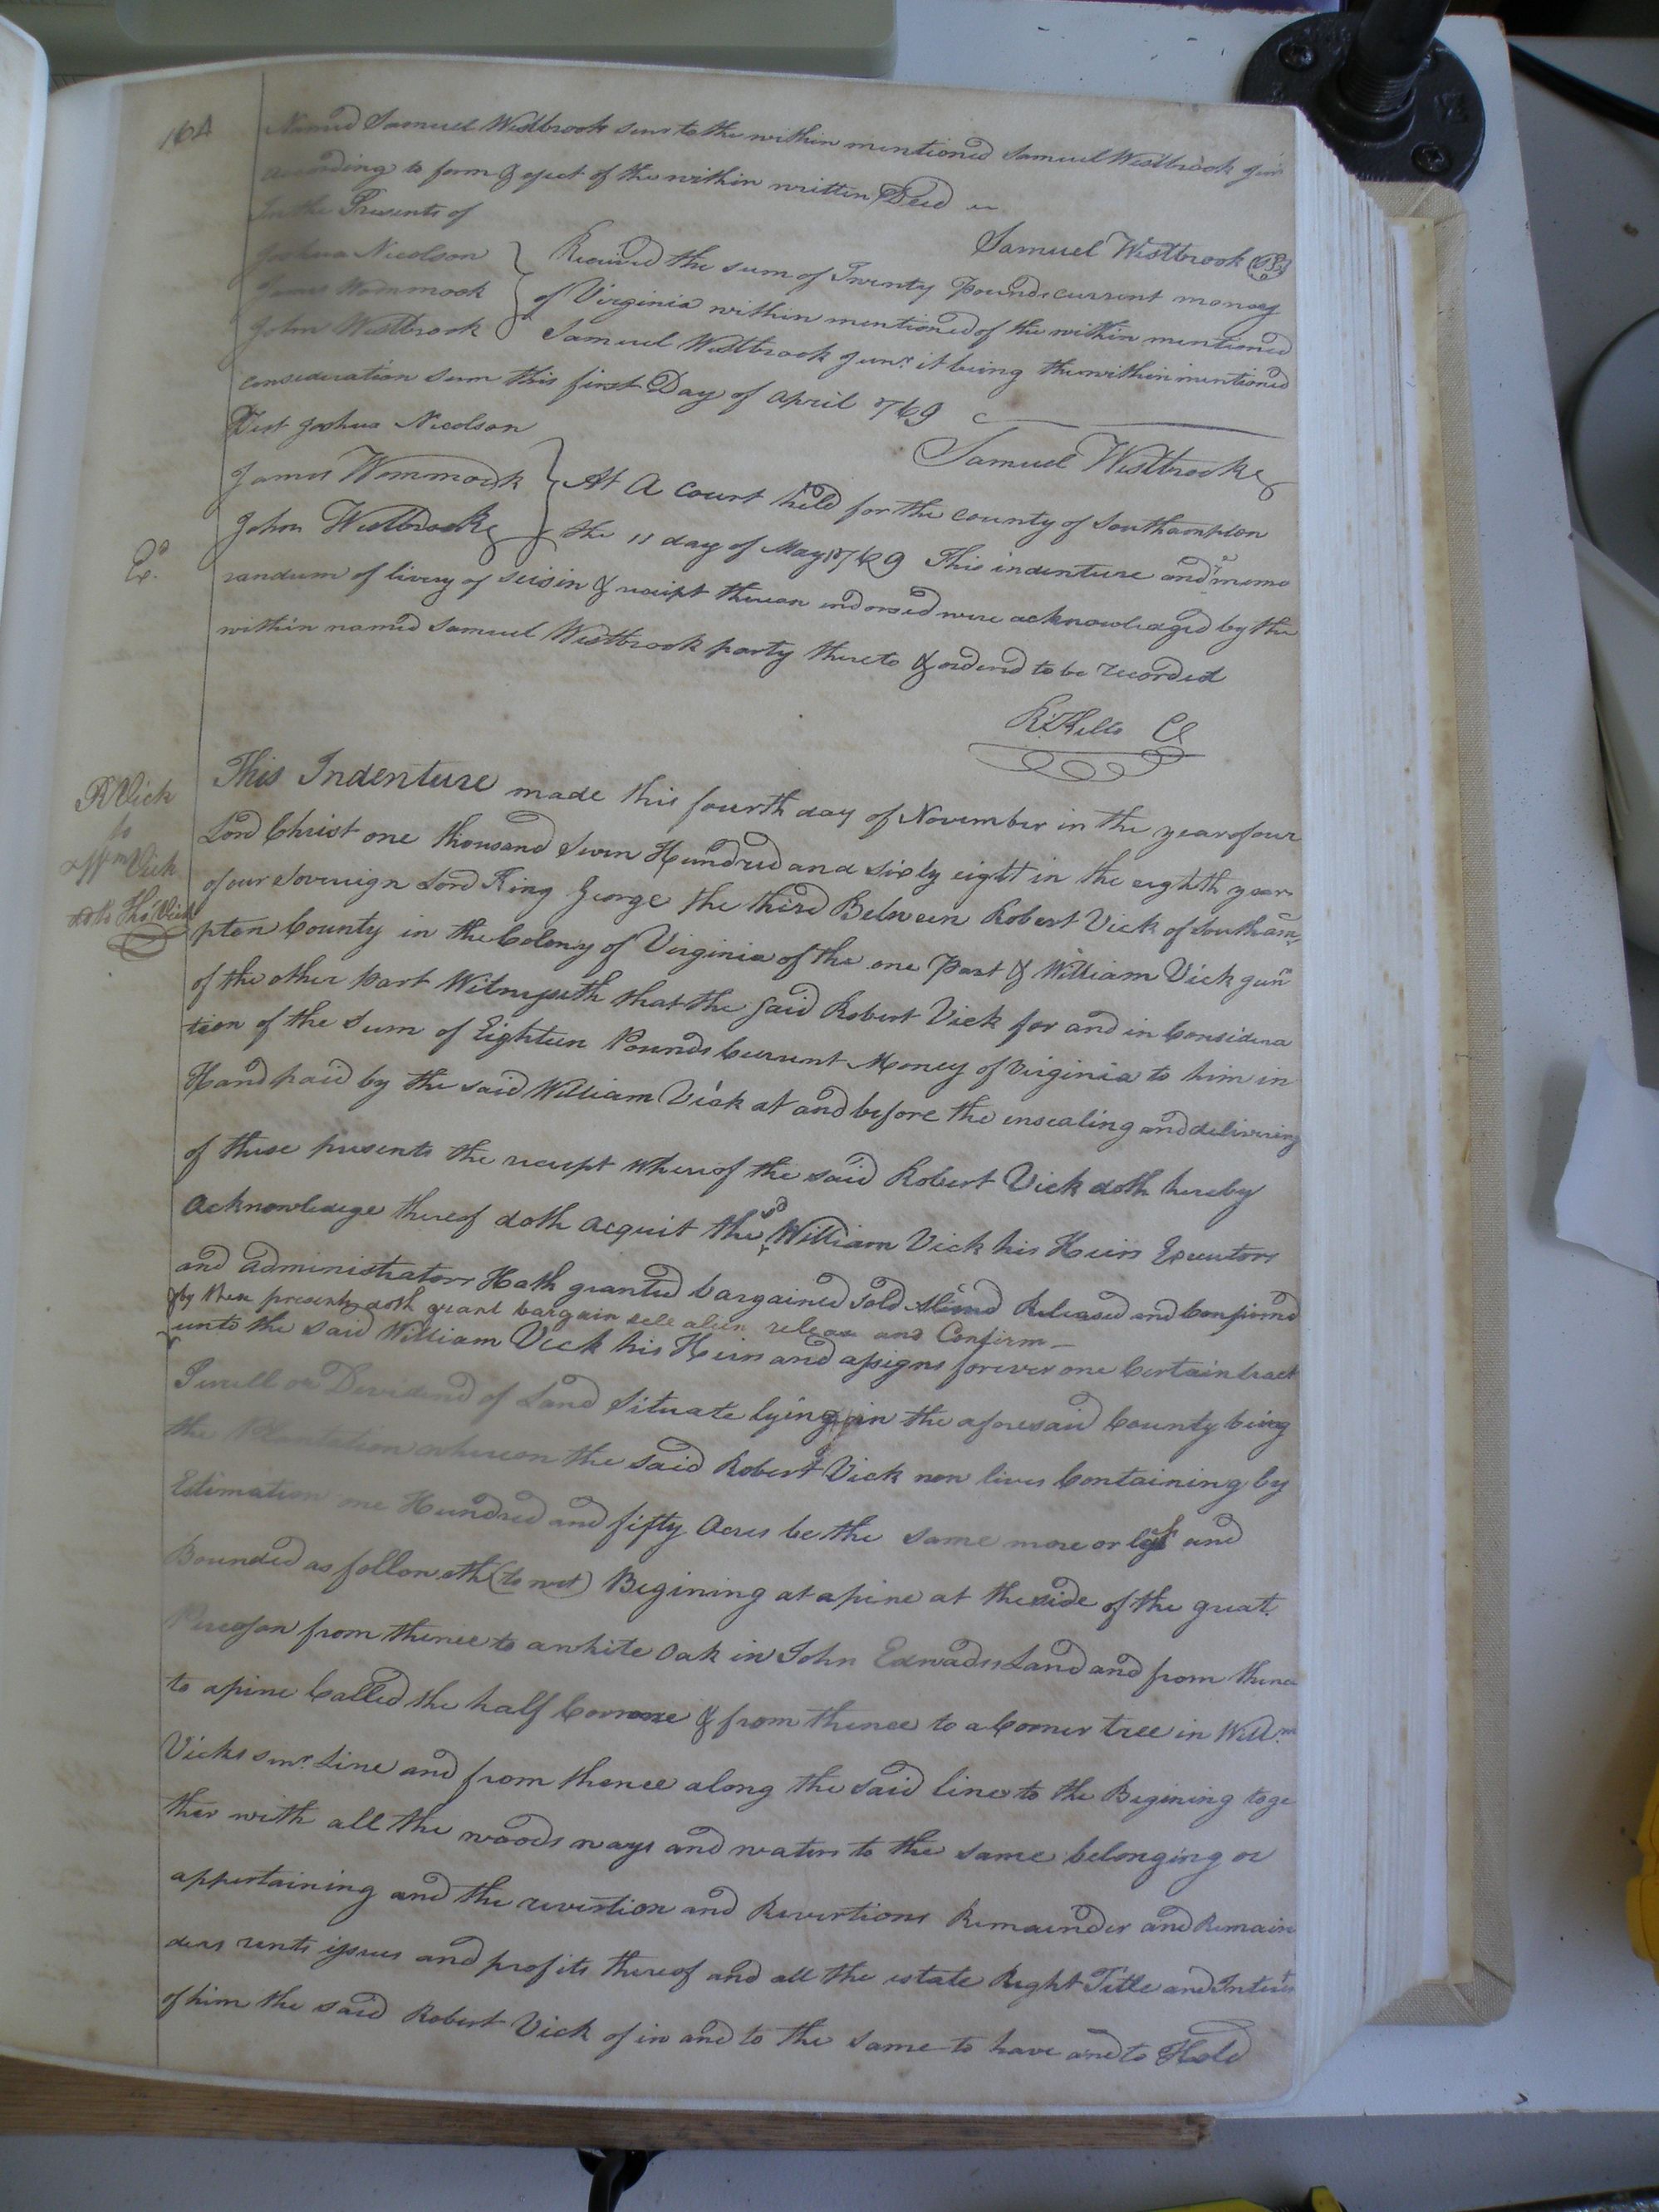 164
Named Samuel Westbrook senr to the within mentioned Samuel Westbrook junr
according to form & efect of the within written Deed
In the Presents of
Samuel Westbrook (LS)
Joshua Nicolson
James Wommock
John Westbrook
Received the sum of Twenty Pounds current money
of Virginia within mentioned of the within mentioned
Samuel Westbrook junr. it being the within mentioned
consideration sum this first Day of April 1769
Test Joshua Nicolson
Samuel Westbrooke
James Wommock
John Westbrooke
At A Court held for the County of Southampton
the 11 day of May 1769 This indenture and memo
Ex.
randum of livery of seisin & receipt thereon endorsed were acknowledged by the
within named Samuel Westbrook party thereto & orderd to be recorded
R. Kello CC
R Vick
to
Wm Vick
This Indenture made this fourth day of November in the year of our
Lord Christ one thousand Seven Hundred and sixty eight in the eighth year
of our Sovereign Lord King George the third Between Robert Vick of Southam
pton County in the Colony of Virginia of the one Part & William Vick jun
of the other Part Witnesseth that the said Robert Vick for and in Considera
tion of the Sum of Eighteen Pounds Current Money of Virginia to him in
Hand paid by the said William Vick at and before the ensealing and delivering
of these presents the receipt whereof the said Robert Vick doth hereby
Acknowledge thereof doth Acquit the sd William Vick his Heirs Executors
and Administrators Hath granted bargained sold Aliend Released and Confirmd
by these presents doth grant bargain sell alien release and Confirm
unto the said William Vick his Heirs and assigns forever one Certain tract
Percell or Devidend of Land Situate lying in the aforesaid County being
the Plantation whereon the said Robert Vick now lives Containing by
Estimation one Hundred and fifty Acres be the same more or less and
Bounded as followeth (to wit) Begining at a pine at the side of the great
Pecoson from thence to a white Oak in John Edwads Land and from thence
to a pine Called the half Cornner & from thence to a Corner tree in Willm
Vicks senr. Line and from thence along the said line to the Begining toge
ther with all the woods ways and waters to the same belonging or
appertaining and the revertion and Revertions Remainder and Remain
ders rents issues and profits thereof and all the estate Right Title and Interest
of him the said Robert Vick of in and to the same to have and to Hold